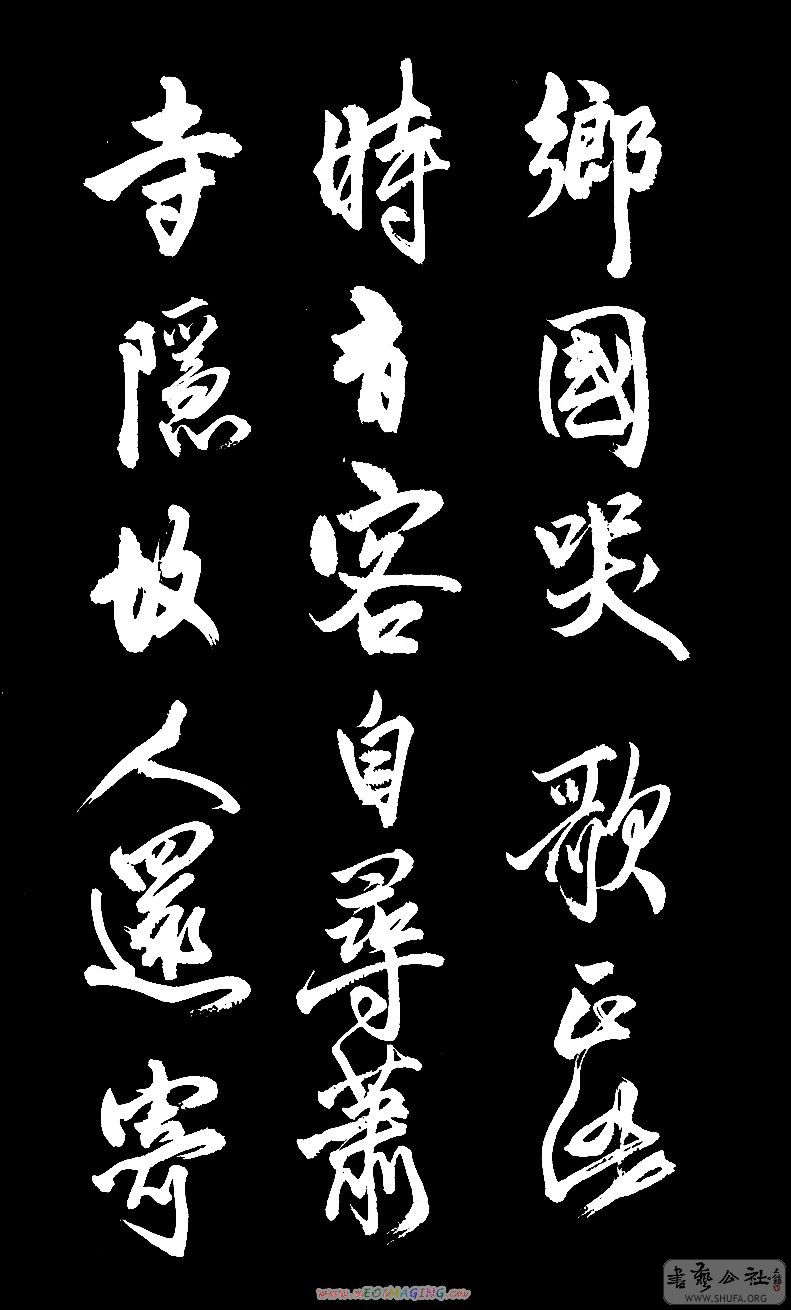 鄉國哭歌正
時有客自尋蕭
寺隱故人還寄
書藝公社
WWW.SHUFA.ORG
www.nEOIMAGING.com